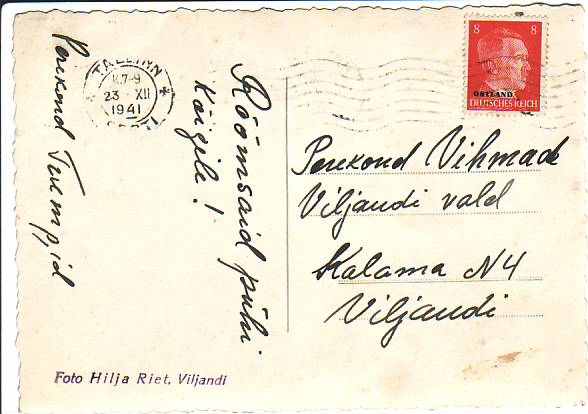 Rõõmsaid pühi
kõigile!
Perekond Trumpid
TALLINN
23 XII
1941
8 8
OSTLAND
DEUTSCHES REICH
Perekond Vihmade
Viljandi vald
Kalama N 4
Viljandi
Foto Hilja Riet, Viljandi